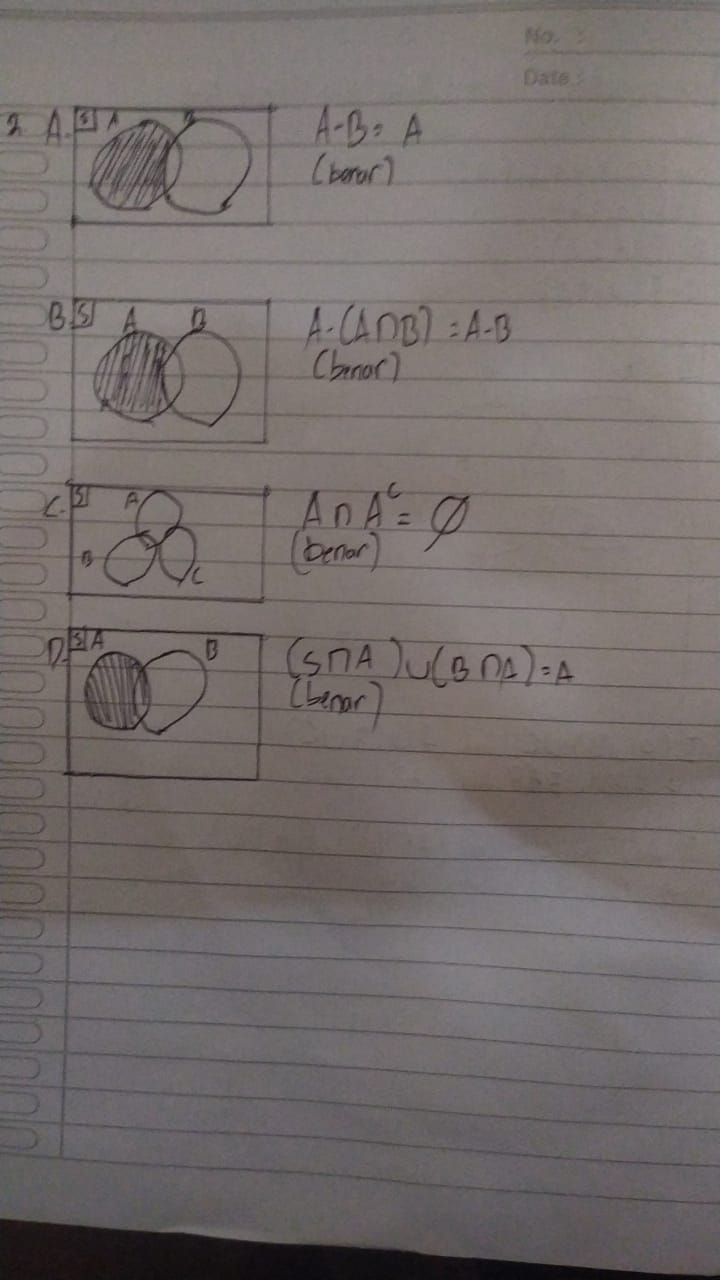 No. :
Date :
2 A. S A B A-B = A
(benar)
B. S A B A-(A∩B) = A-B
(benar)
C. S A B C A ∩ Aᶜ = ∅
(benar)
D. S A B (S∩A) ∪ (B∩A) = A
(benar)